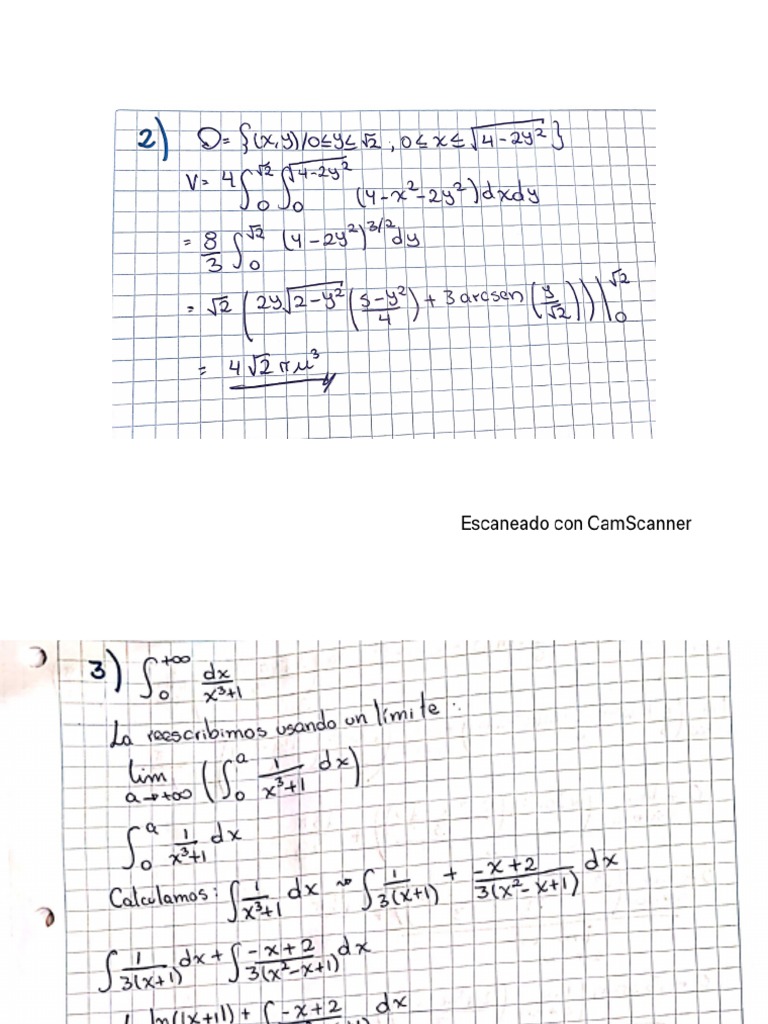 2) D= {(x,y)/0≤y≤√2 , 0≤x≤√(4-2y²)}
V= 4∫₀^√2 ∫₀^√(4-2y²) (4-x²-2y²)dxdy
= 8/3 ∫₀^√2 (4-2y²)^3/2 dy
= √2 (2y√(2-y²) (5-y²)/4 + 3 arcsen (y/√2))|₀^√2
= 4√2 π μ³
Escaneado con CamScanner
3) ∫₀^+∞ dx/(x³+1)
La reescribimos usando un límite :
lim a→+∞ (∫₀^a 1/(x³+1) dx)
∫₀^a 1/(x³+1) dx
Calculamos: ∫ 1/(x³+1) dx ~ ∫ 1/(3(x+1)) + (-x+2)/(3(x²-x+1)) dx
∫ 1/(3(x+1)) dx + ∫ (-x+2)/(3(x²-x+1)) dx
ln(|x+1|) + ∫ -x+2 dx